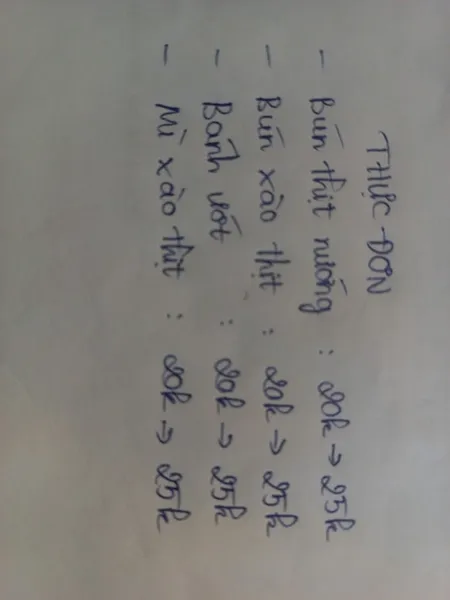 THỰC ĐƠN
- Bún thịt nướng : 20k → 25k
- Bún xào thịt : 20k → 25k
- Bánh ướt : 20k → 25k
- Mì xào thịt : 20k → 25k